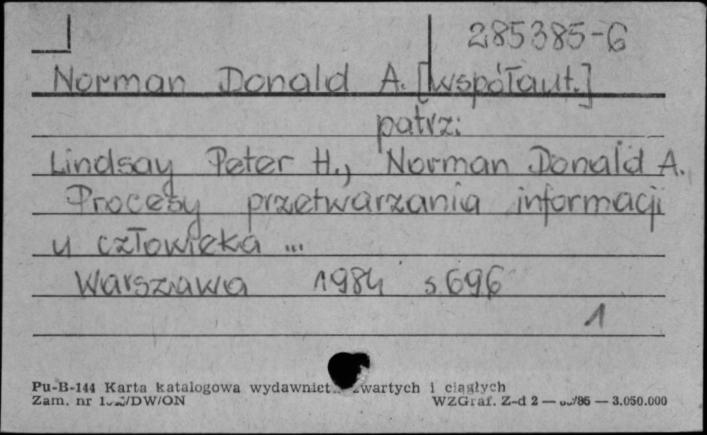 285385-G
Norman Donald A. [współaut.]
patrz:
Lindsay Peter H., Norman Donald A.
Procesy przetwarzania informacji
u człowieka ...
Warszawa 1984 s 696
1
Pu-B-144 Karta katalogowa wydawnict zwartych i ciągłych
Zam. nr /DW/ON WZGraf. Z-d 2 — /86 — 3.050.000